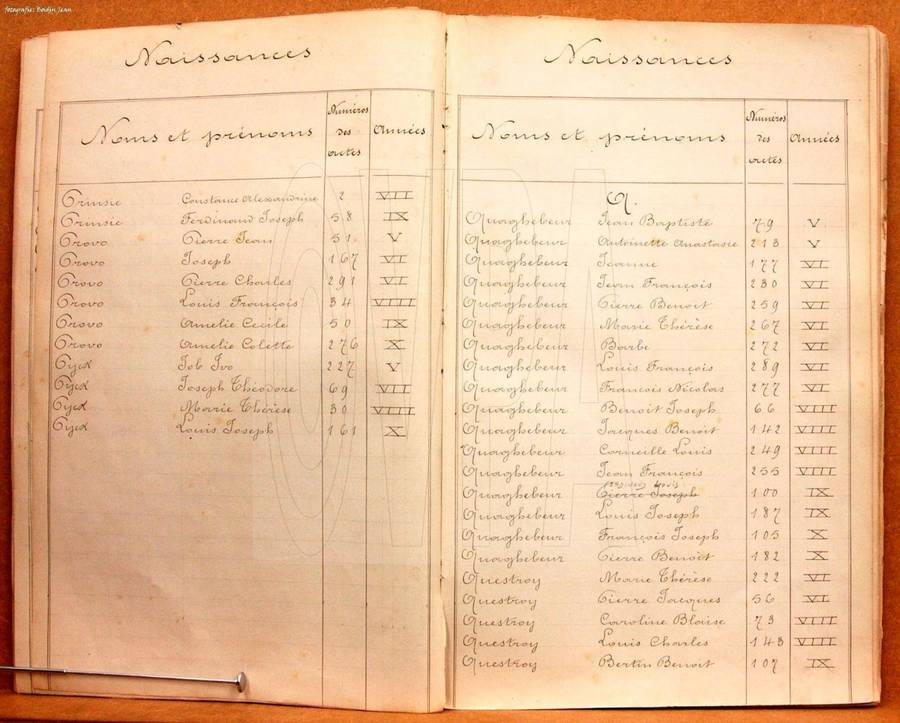 fotografie: Boidin Jean
Naissances
Noms et prénoms Numéros des actes Années
Prinsie Constance Alexandrine 2 VII
Prinsie Ferdinand Joseph 58 IX
Provo Pierre Jean 51 V
Provo Joseph 167 VI
Provo Pierre Charles 291 VI
Provo Louis François 34 VIII
Provo Amelie Cecile 50 IX
Provo Amelie Colette 276 X
Pyck Job Ivo 227 V
Pyck Joseph Théodore 69 VII
Pyck Marie Thérèse 30 VIII
Pyck Louis Joseph 161 X
Naissances
Noms et prénoms Numéros des actes Années
Q.
Quaghebeur Jean Baptiste 79 V
Quaghebeur Antoinette Anastasie 213 V
Quaghebeur Jeanne 177 VI
Quaghebeur Jean François 230 VI
Quaghebeur Pierre Benoit 259 VI
Quaghebeur Marie Thérèse 267 VI
Quaghebeur Barbe 272 VI
Quaghebeur Louis François 289 VI
Quaghebeur François Nicolas 277 VI
Quaghebeur Benoit Joseph 66 VIII
Quaghebeur Jacques Benoit 142 VIII
Quaghebeur Corneille Louis 249 VIII
Quaghebeur Jean François 255 VIII
Quaghebeur Pierre Joseph 100 IX
Quaghebeur Louis Joseph 187 IX
Quaghebeur François Joseph 105 X
Quaghebeur Pierre Benoit 182 X
Questroy Marie Thérèse 222 VI
Questroy Pierre Jacques 56 VI
Questroy Caroline Blaise 73 VIII
Questroy Louis Charles 143 VIII
Questroy Bertin Benoit 107 IX